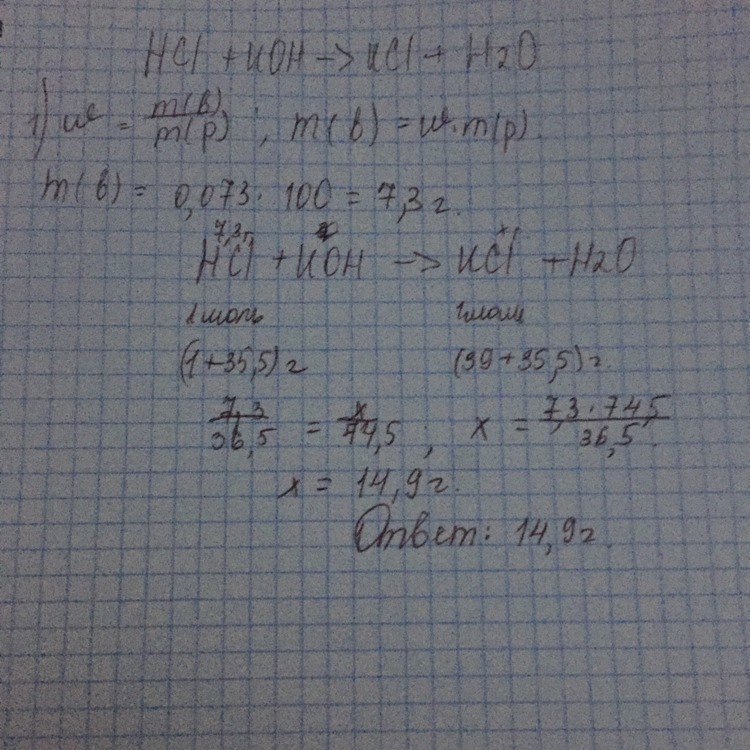 HCl + KOH -> KCl + H2O
1) w = m(в)/m(р) ; m(в) = w·m(р).
m(в) = 0,073 · 100 = 7,3 г.
7,3 г x
HCl + KOH -> KCl + H2O
1 моль 1 моль
(1+35,5) г (39+35,5) г.
7,3/36,5 = x/74,5 ; x = 7,3·74,5/36,5.
x = 14,9 г.
Ответ: 14,9 г